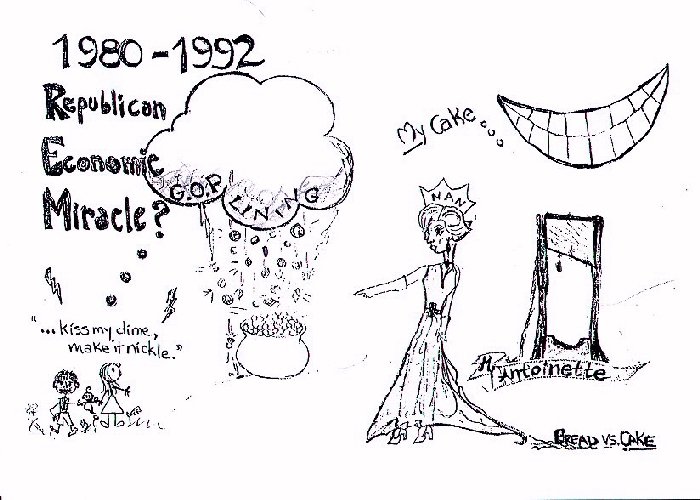 1980-1992
Republican
Economic
Miracle?
G.O.P. LINING
"...kiss my dime,
make it nickle."
My Cake...
NAN
M. Antoinette
BREAD VS. CAKE